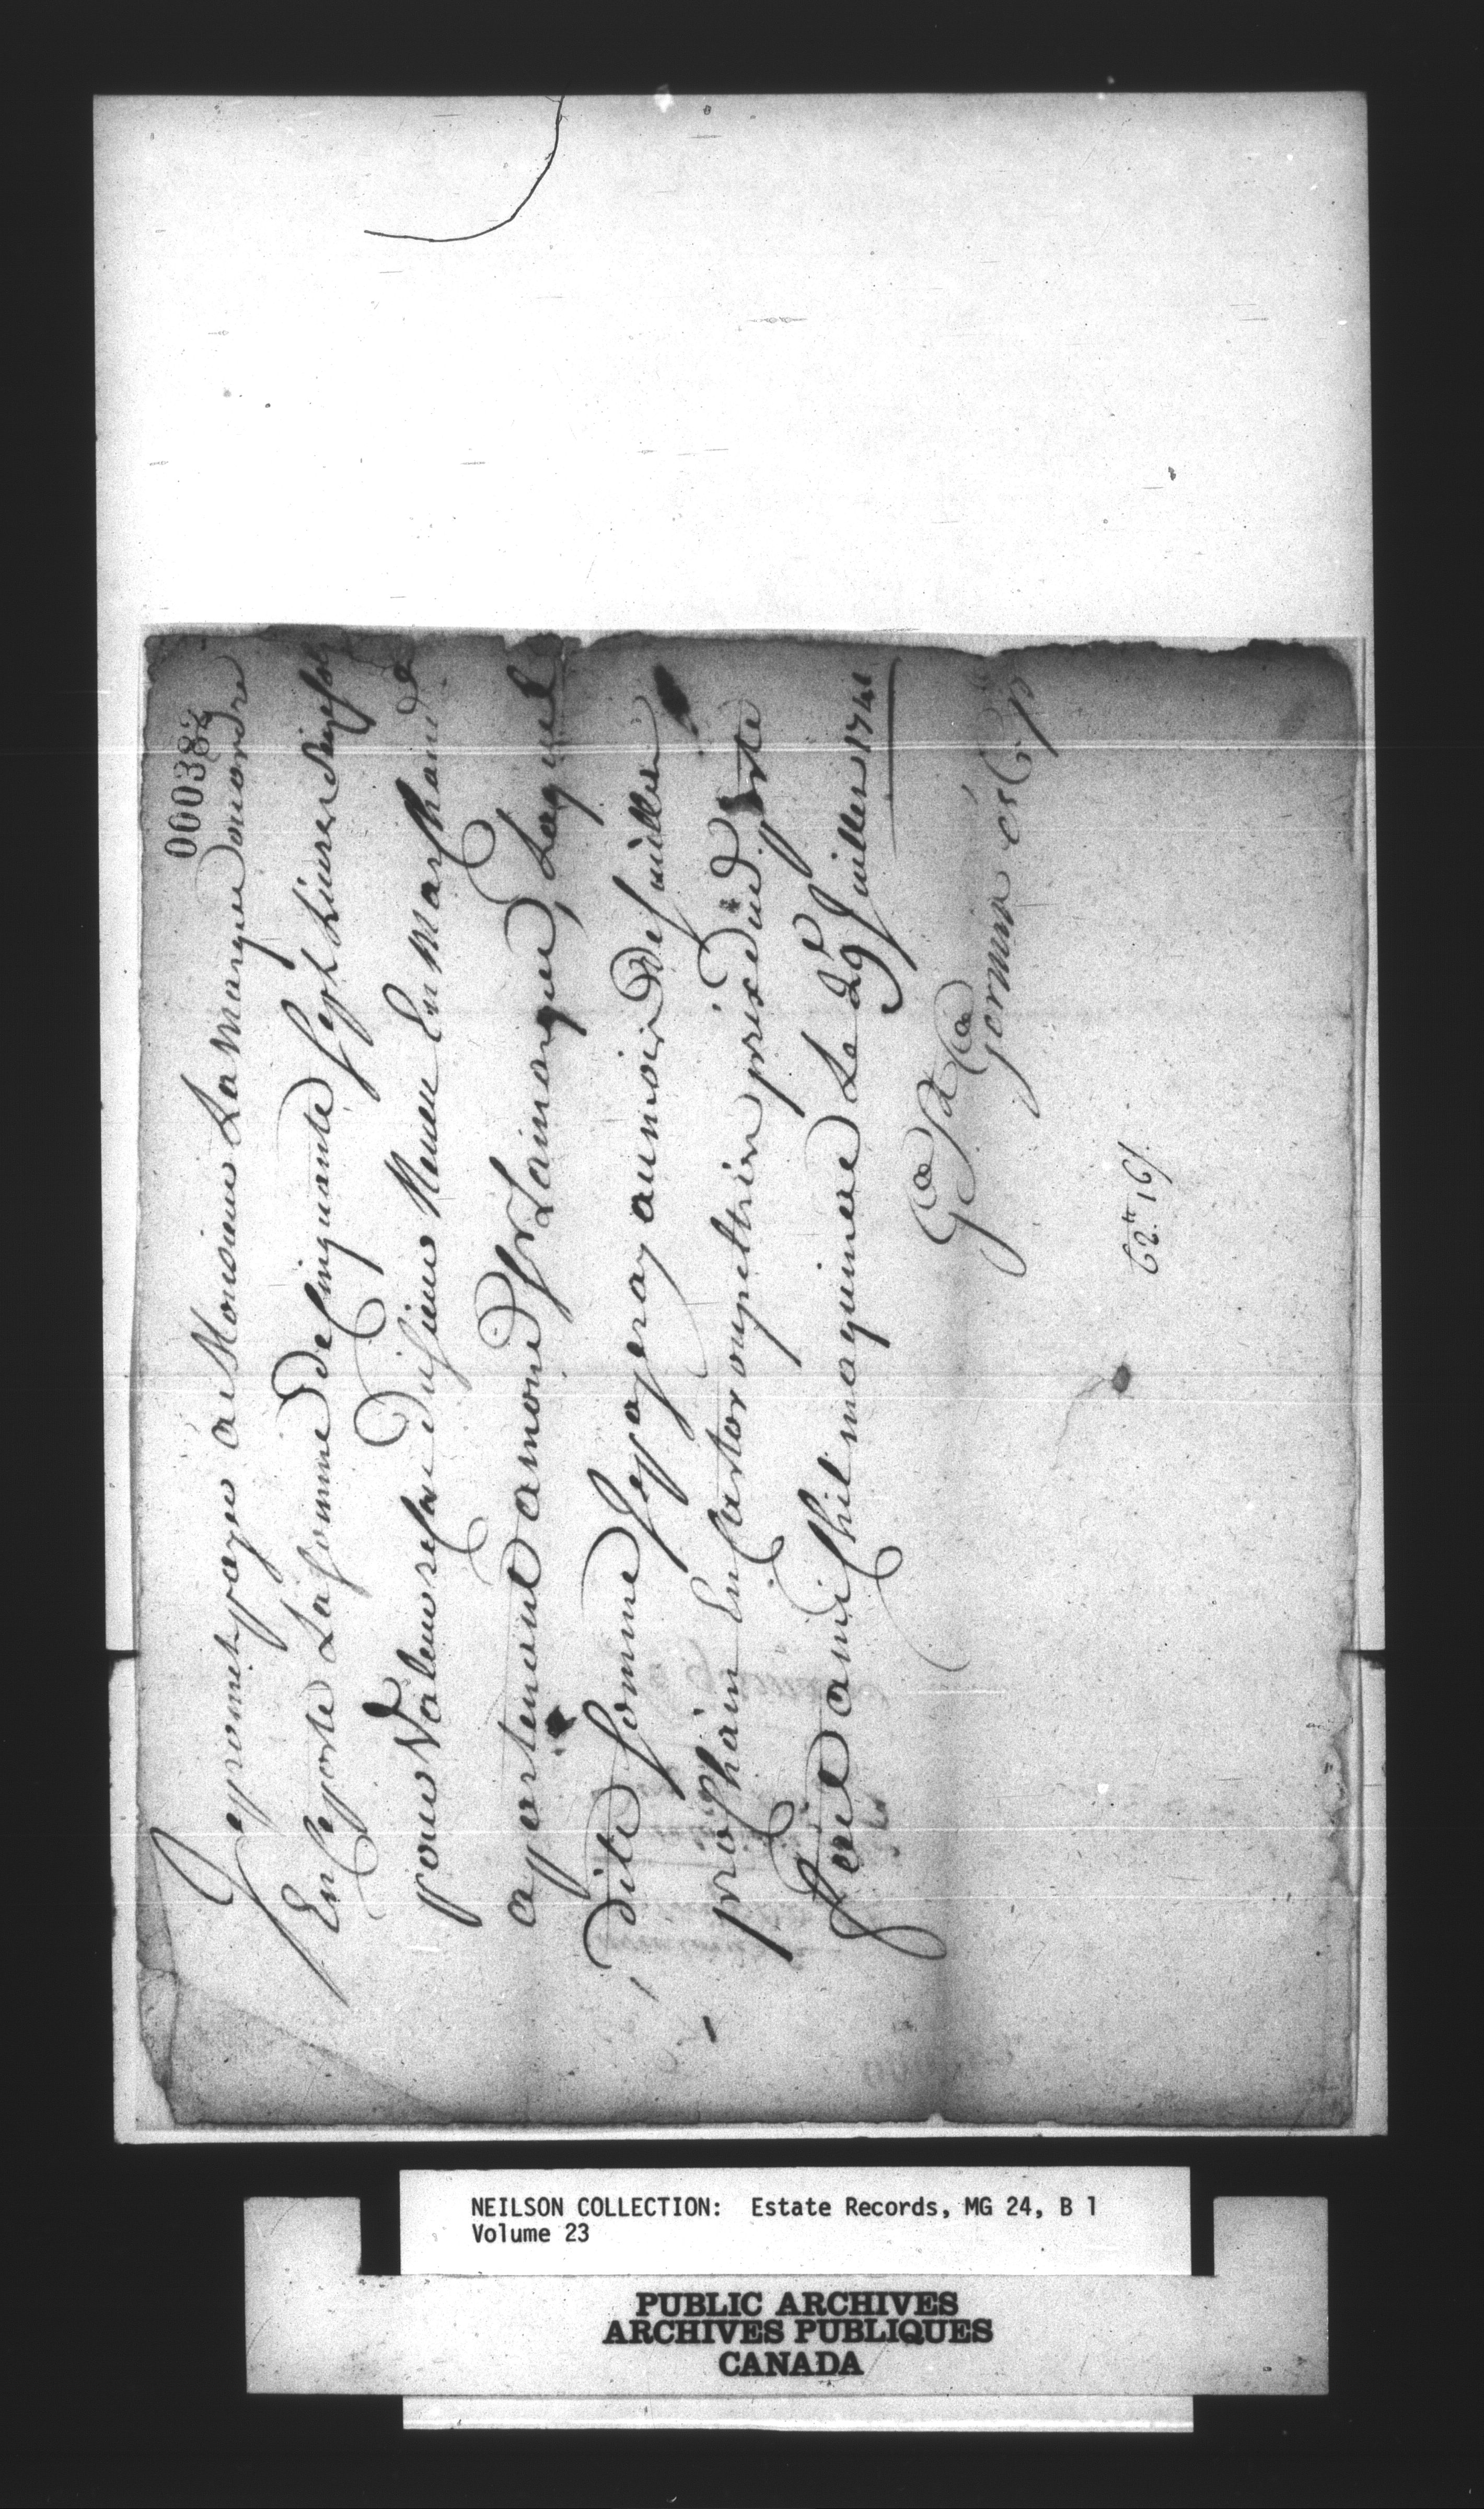 000382
Je promet payer a Monsieur La Marque ou ordre
En Ceporte La somme de Cinquante sept Livres dix sols
pour Valeur resu du sieur Reuse En Marchand
apartenant amond Sr Lamarque, Laquel
dite somme Je payeray au mois De Juillet
prochain En Castor ou peltrie prix du d poste
fait a michilmaquinac Le 29 Juillet 1741
Germin
62tt 16s
NEILSON COLLECTION: Estate Records, MG 24, B 1
Volume 23
PUBLIC ARCHIVES
ARCHIVES PUBLIQUES
CANADA